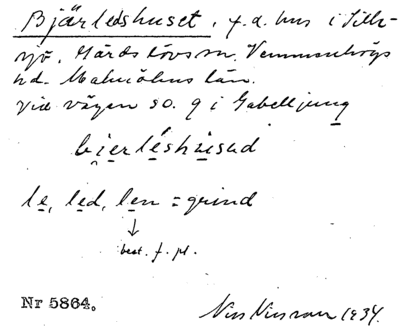 Bjärledshuset, f.d. hus i Sillesjö,
Gärdslövs sn. Vemmenhögs
hd. Malmöhus län.
vid vägen so. 9 i Gabelljung
bierléshúisud
le, led, len = grind
↓
best. f. pl.
Nr 5864. Nils Nilsson 1934.